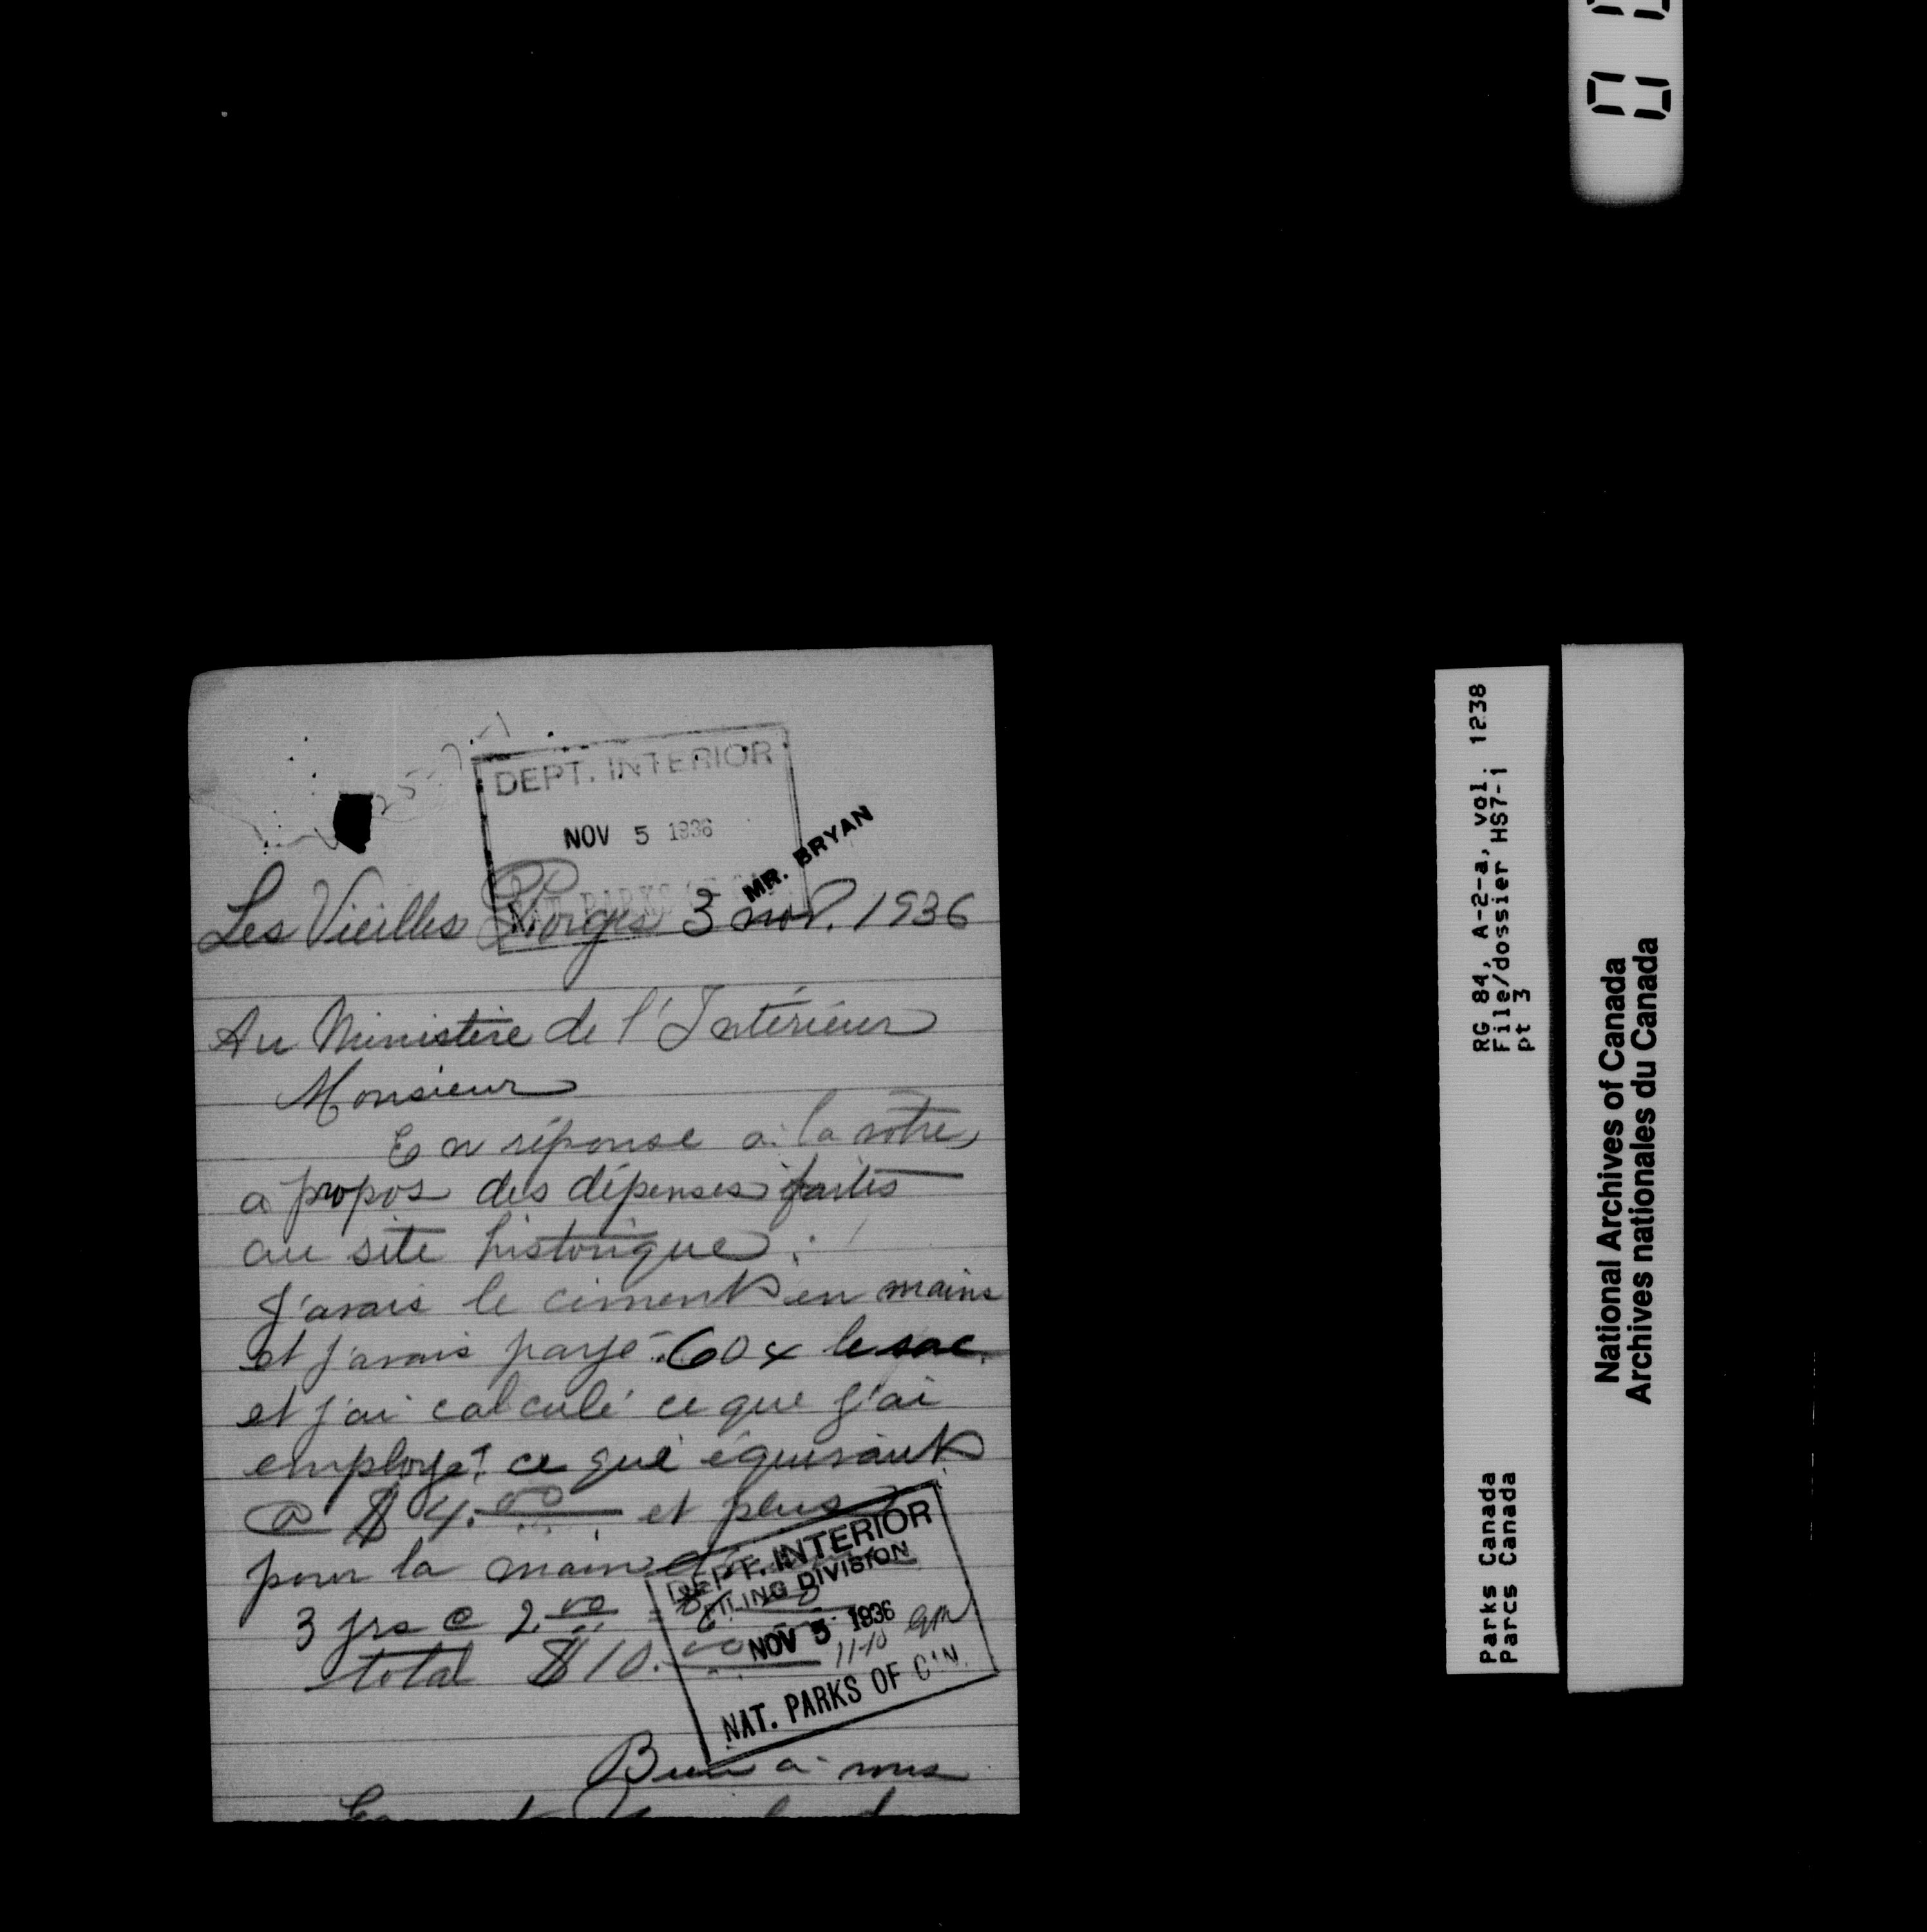 DEPT. INTERIOR
NOV 5 1936
NAT. PARKS OF CAN.
MR. BRYAN
Les Vieilles Forges 3 nov. 1936
Au Ministère de l'Intérieur
Monsieur
En réponse a la votre,
a propos des dépenses faites
au site historique :
J'avais le ciment en mains
et j'avais payé 60¢ le sac
et j'ai calculé ce que j'ai
employé ce qui équivaut
@ $4.00 et plus
pour la main
3 jrs @ 2.00 = 6.00
total $10.00
DEPT. INTERIOR
FILING DIVISION
NOV 5 1936
11-10 am
NAT. PARKS OF CAN.
Bien a vous
RG 84, A-2-a, vol. 1238
File/dossier HS7-1
pt 3
Parks Canada
Parcs Canada
National Archives of Canada
Archives nationales du Canada